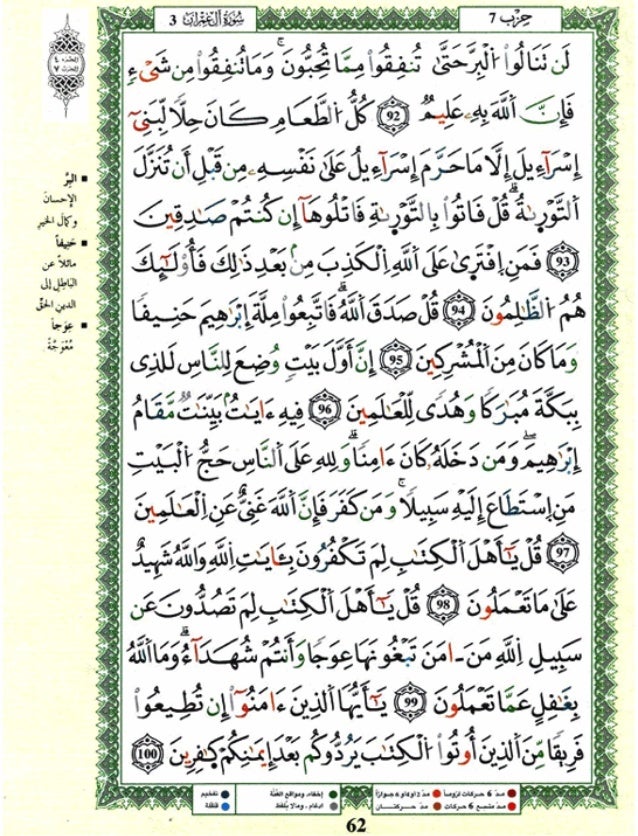 حِزْب 7
سُورَةُ آلِ عِمْرَانَ 3
لَن تَنَالُوا۟ الْبِرَّ حَتَّىٰ تُنفِقُوا۟ مِمَّا تُحِبُّونَۖ وَمَا تُنفِقُوا۟ مِن شَےْءٖ
فَإِنَّ اَللَّهَ بِهِۦ عَلِيمٞ 92 كُلُّ الطَّعَامِ كَانَ حِلّاٗ لِّبَنِےٓ
إِسْرَآءِيلَ إِلَّا مَا حَرَّمَ إِسْرَآءِيلُ عَلَىٰ نَفْسِهِۦ مِن قَبْلِ أَن تُنَزَّلَ
اَلتَّوْرَىٰةُۖ قُلْ فَاتُوا۟ بِالتَّوْرَىٰةِ فَاتْلُوهَآ إِن كُنتُمْ صَٰدِقِينَ
93 فَمَنِ اِفْتَرَىٰ عَلَى اَللَّهِ اِلْكَذِبَ مِنۢ بَعْدِ ذَٰلِكَ فَأُوْلَٰٓئِكَ
هُمُ الظَّٰلِمُونَ 94 قُلْ صَدَقَ اَللَّهُۖ فَاتَّبِعُوا۟ مِلَّةَ إِبْرَٰهِيمَ حَنِيفاٗ
وَمَا كَانَ مِنَ اَلْمُشْرِكِينَ 95 إِنَّ أَوَّلَ بَيْتٖ وُضِعَ لِلنَّاسِ لَلذِى
بِبَكَّةَ مُبَٰرَكاٗ وَهُدىٗ لِّلْعَٰلَمِينَ 96 فِيهِ ءَايَٰتُۢ بَيِّنَٰتٞ مَّقَامُ
إِبْرَٰهِيمَۖ وَمَن دَخَلَهُۥ كَانَ ءَامِناٗۖ وَلِلهِ عَلَى اَلنَّاسِ حَجُّ الْبَيْتِ
مَنِ اِسْتَطَاعَ إِلَيْهِ سَبِيلاٗۖ وَمَن كَفَرَ فَإِنَّ اَللَّهَ غَنِىٌّ عَنِ اِلْعَٰلَمِينَ
97 قُلْ يَٰٓأَهْلَ اَلْكِتَٰبِ لِمَ تَكْفُرُونَ بِـَٔايَٰتِ اِللَّهِ وَاللَّهُ شَهِيدٌ
عَلَىٰ مَا تَعْمَلُونَ 98 قُلْ يَٰٓأَهْلَ اَلْكِتَٰبِ لِمَ تَصُدُّونَ عَن
سَبِيلِ اِللَّهِ مَنَ ـ امَنَ تَبْغُونَهَا عِوَجاٗ وَأَنتُمْ شُهَدَآءُۖ وَمَا اَللَّهُ
بِغَٰفِلٍ عَمَّا تَعْمَلُونَ 99 يَٰٓأَيُّهَا اَلذِينَ ءَامَنُوٓا۟ إِن تُطِيعُوا۟
فَرِيقاٗ مِّنَ اَلذِينَ أُوتُوا۟ اُلْكِتَٰبَ يَرُدُّوكُم بَعْدَ إِيمَٰنِكُمْ كَٰفِرِينَ 100
■ البِرَّ
الإحسانَ
وكمالَ الخيرِ
■ حَنِيفاً
مائلاً عن
الباطلِ إلى
الدينِ الحقِّ
■ عِوَجاً
مُعْوَجَّةً
مدّ 6 حركات لزوماً
مدّ 2 أو 4 أو 6 جوازاً
إخفاء، ومواقع الغُنَّة
تفخيم
مدّ مشبع 6 حركات
مدّ حركتان
ادغام، وما لا يُلفَظ
قلقلة
62